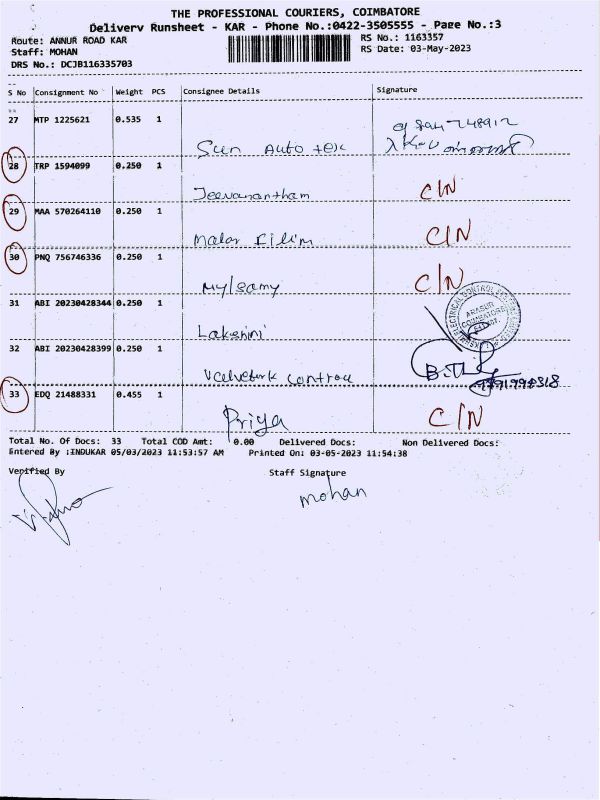 THE PROFESSIONAL COURIERS, COIMBATORE
Delivery Runsheet - KAR - Phone No.:0422-3505555 - Page No.:3
Route: ANNUR ROAD KAR
RS No.: 1163357
Staff: MOHAN
RS Date: 03-May-2023
DRS No.: DCJB116335703
S No Consignment No Weight PCS Consignee Details Signature
27 MTP 1225621 0.535 1
Sun Auto tek
28 TRP 1594099 0.250 1
Jeevanantham C/N
29 MAA 570264110 0.250 1
Malar Filim C/N
30 PNQ 756746336 0.250 1
Mylsamy C/N
31 ABI 20230428344 0.250 1
Lakshmi
ARASUR
COIMBATORE
32 ABI 20230428399 0.250 1
33 EDQ 21488331 0.455 1
Priya C/N
Total No. Of Docs: 33 Total COD Amt: 0.00 Delivered Docs: Non Delivered Docs:
Entered By :INDUKAR 05/03/2023 11:53:57 AM Printed On: 03-05-2023 11:54:38
Verified By Staff Signature
mohan